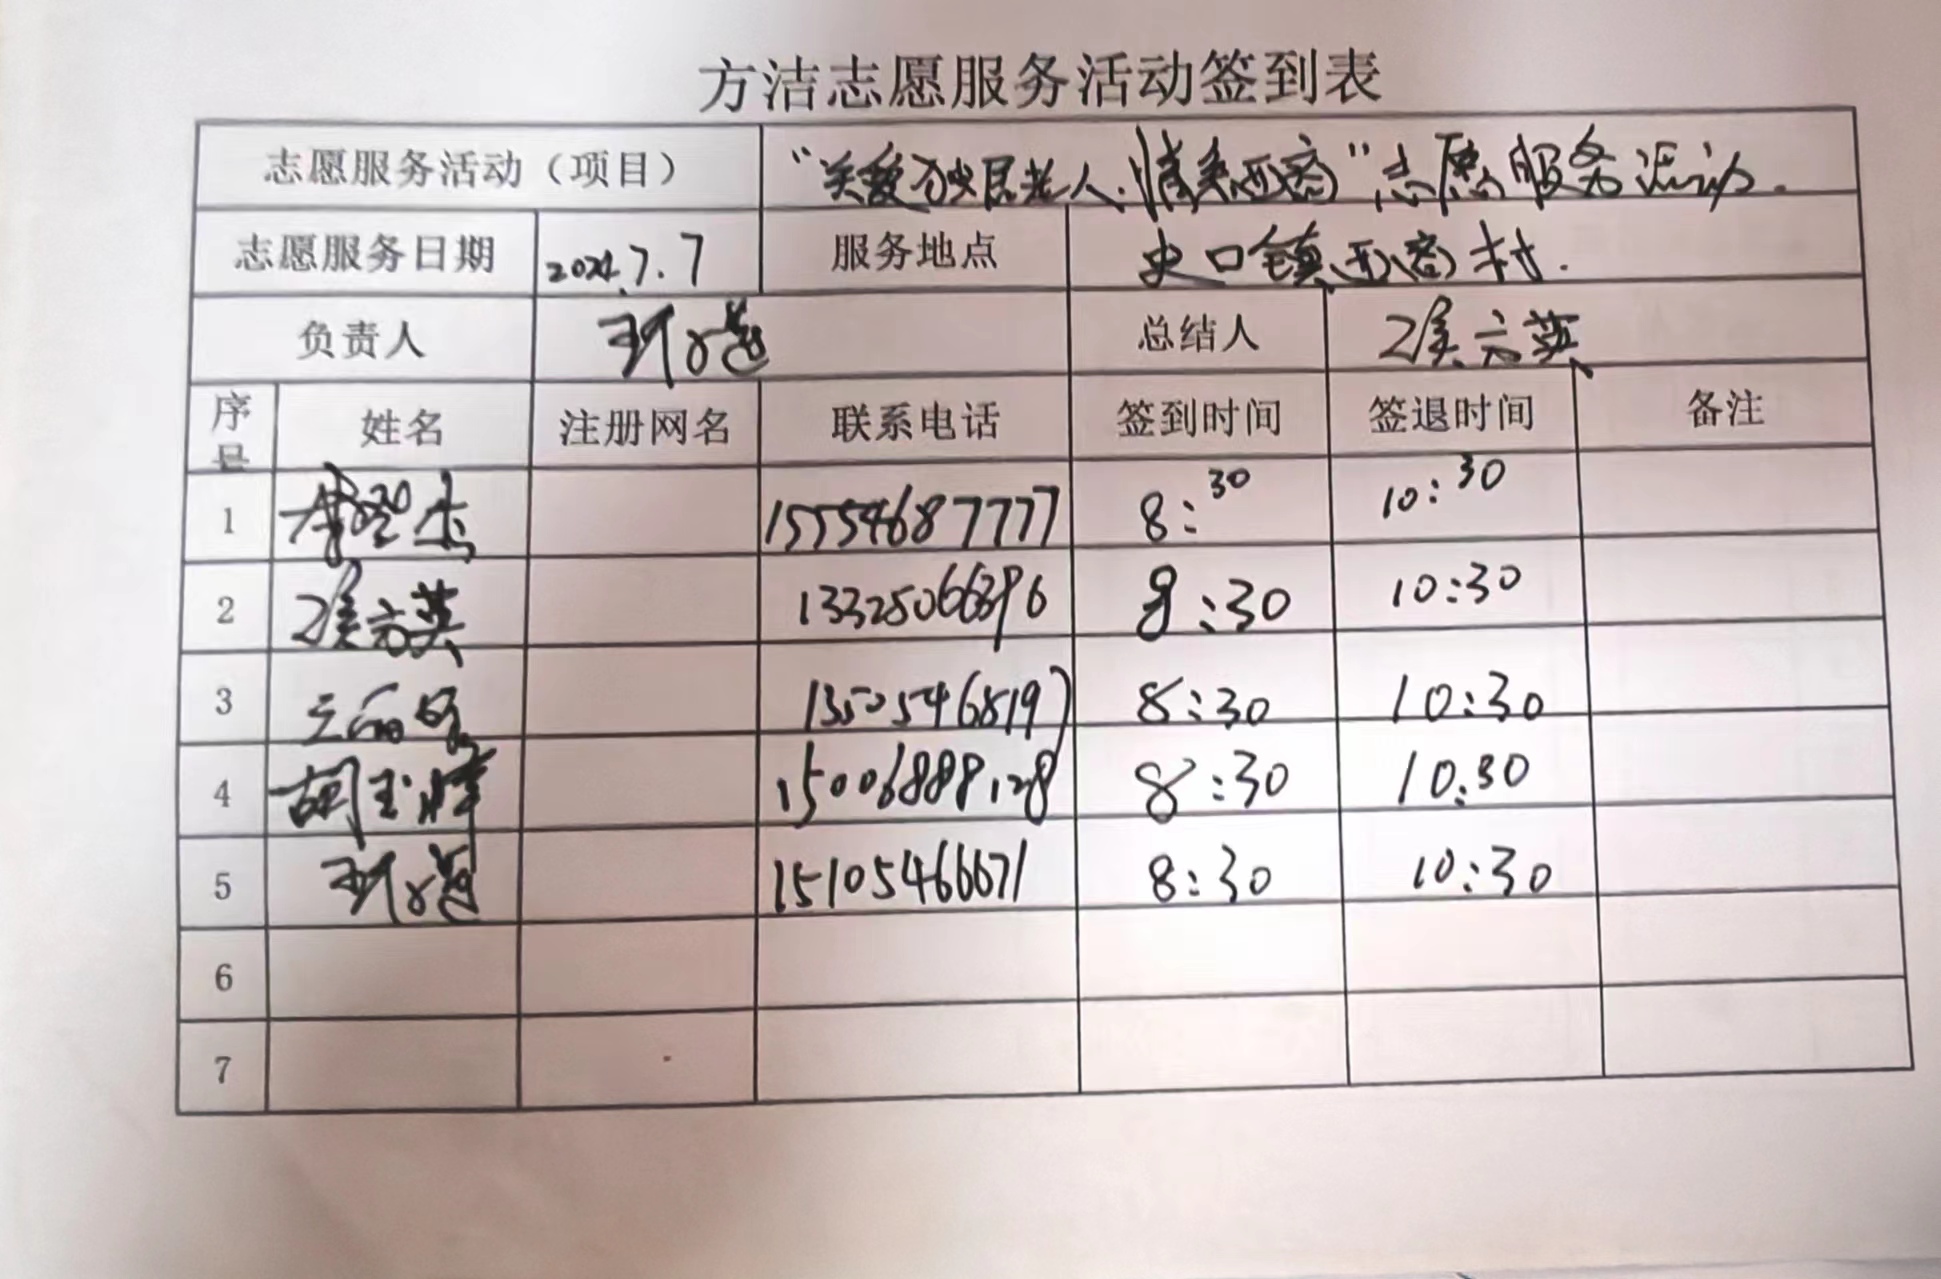 方洁志愿服务活动签到表
志愿服务活动（项目） “关爱独居老人.情系西商”志愿服务活动.
志愿服务日期 2024.7.7 服务地点 史口镇西商村.
负责人 总结人
序号 姓名 注册网名 联系电话 签到时间 签退时间 备注
1 15554687777 8:30 10:30
2 8:30 10:30
3 8:30 10:30
4 胡玉 15006888128 8:30 10:30
5 15105466671 8:30 10:30
6
7